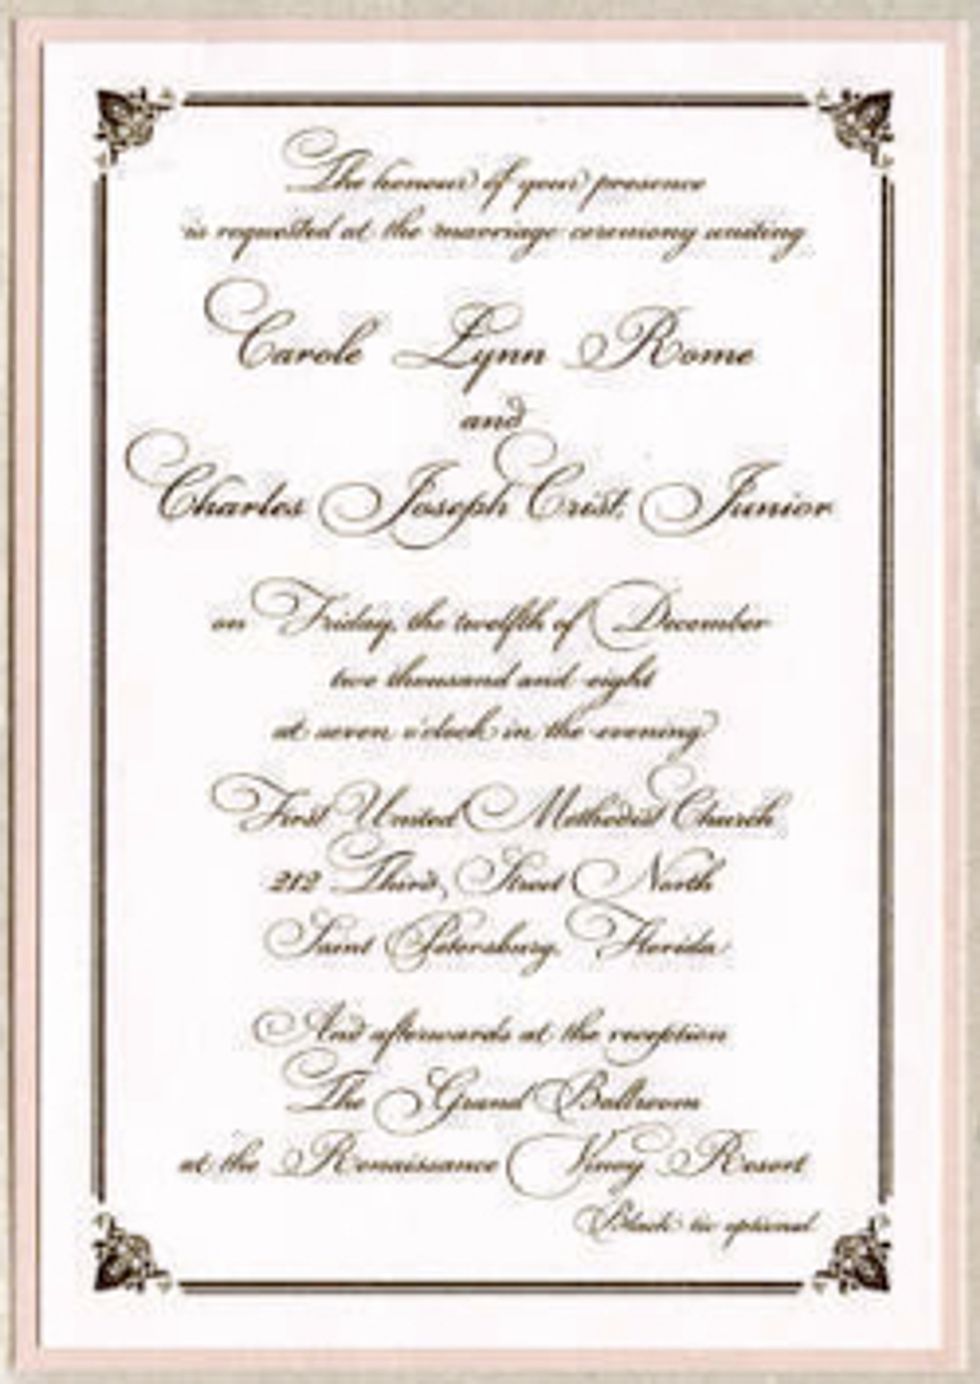 The honour of your presence
is requested at the marriage ceremony uniting
Carole Lynn Rome
and
Charles Joseph Crist, Junior
on Friday, the twelfth of December
two thousand and eight
at seven o'clock in the evening
First United Methodist Church
212 Third Street North
Saint Petersburg, Florida
And afterwards at the reception
The Grand Ballroom
at the Renaissance Vinoy Resort
Black tie optional